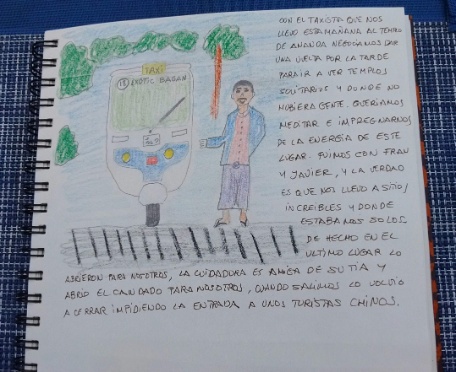 TAXI
EXOTIC BAGAN
CON EL TAXISTA QUE NOS
LLEVO ESTA MAÑANA AL TEMPLO
DE ANANDA NEGOCIAMOS DAR
UNA VUELTA POR LA TARDE
PARA IR A VER TEMPLOS
SOLITARIOS Y DONDE NO
HUBIERA GENTE. QUERIAMOS
MEDITAR E IMPREGNARNOS
DE LA ENERGIA DE ESTE
LUGAR. FUIMOS CON FRAN
Y JAVIER, Y LA VERDAD
ES QUE NOS LLEVO A SITIOS
INCREIBLES Y DONDE
ESTABAMOS SOLOS.
DE HECHO EN EL
ULTIMO LUGAR LO
ABRIERON PARA NOSOTROS, LA CUIDADORA ES AMIGA DE SU TIA Y
ABRIO EL CANDADO PARA NOSOTROS, CUANDO SALIMOS LO VOLVIO
A CERRAR IMPIDIENDO LA ENTRADA A UNOS TURISTAS CHINOS.